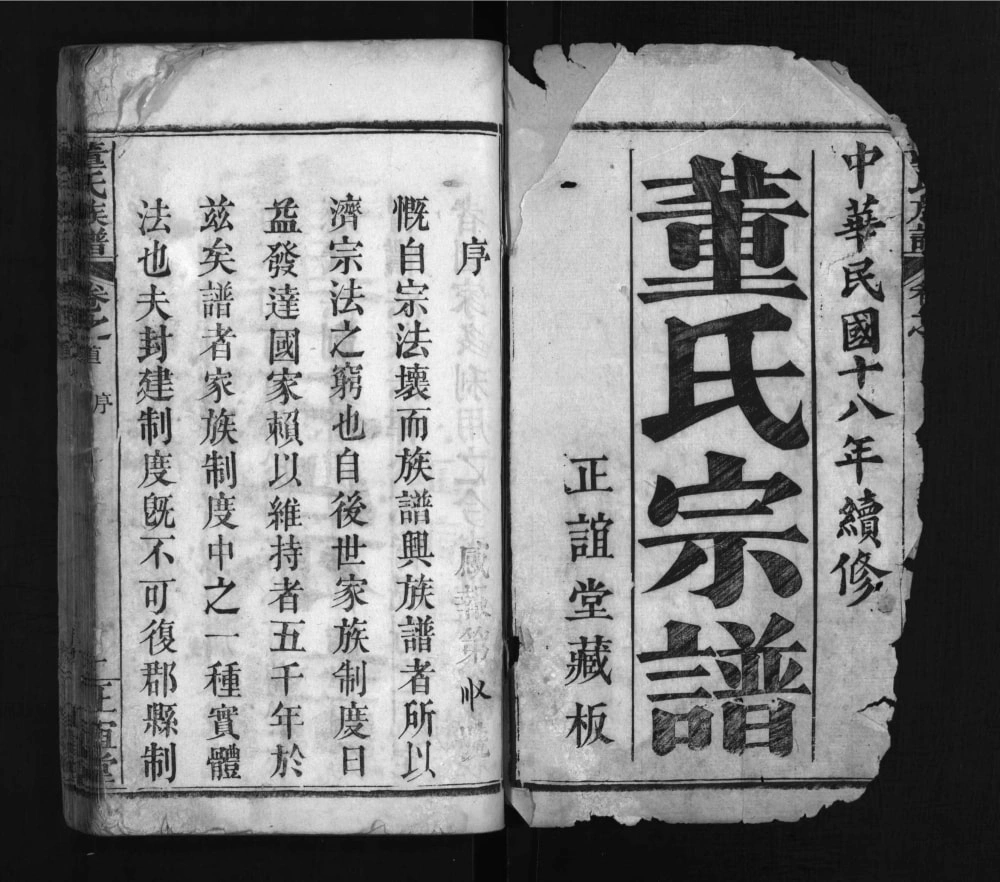 中華民國十八年續修
董氏宗譜
正誼堂藏板
序
慨自宗法壞而族譜興族譜者所以
濟宗法之窮也自後世家族制度日
益發達國家賴以維持者五千年於
兹矣譜者家族制度中之一種實體
法也夫封建制度旣不可復郡縣制
董氏族譜
卷之
序
正誼堂